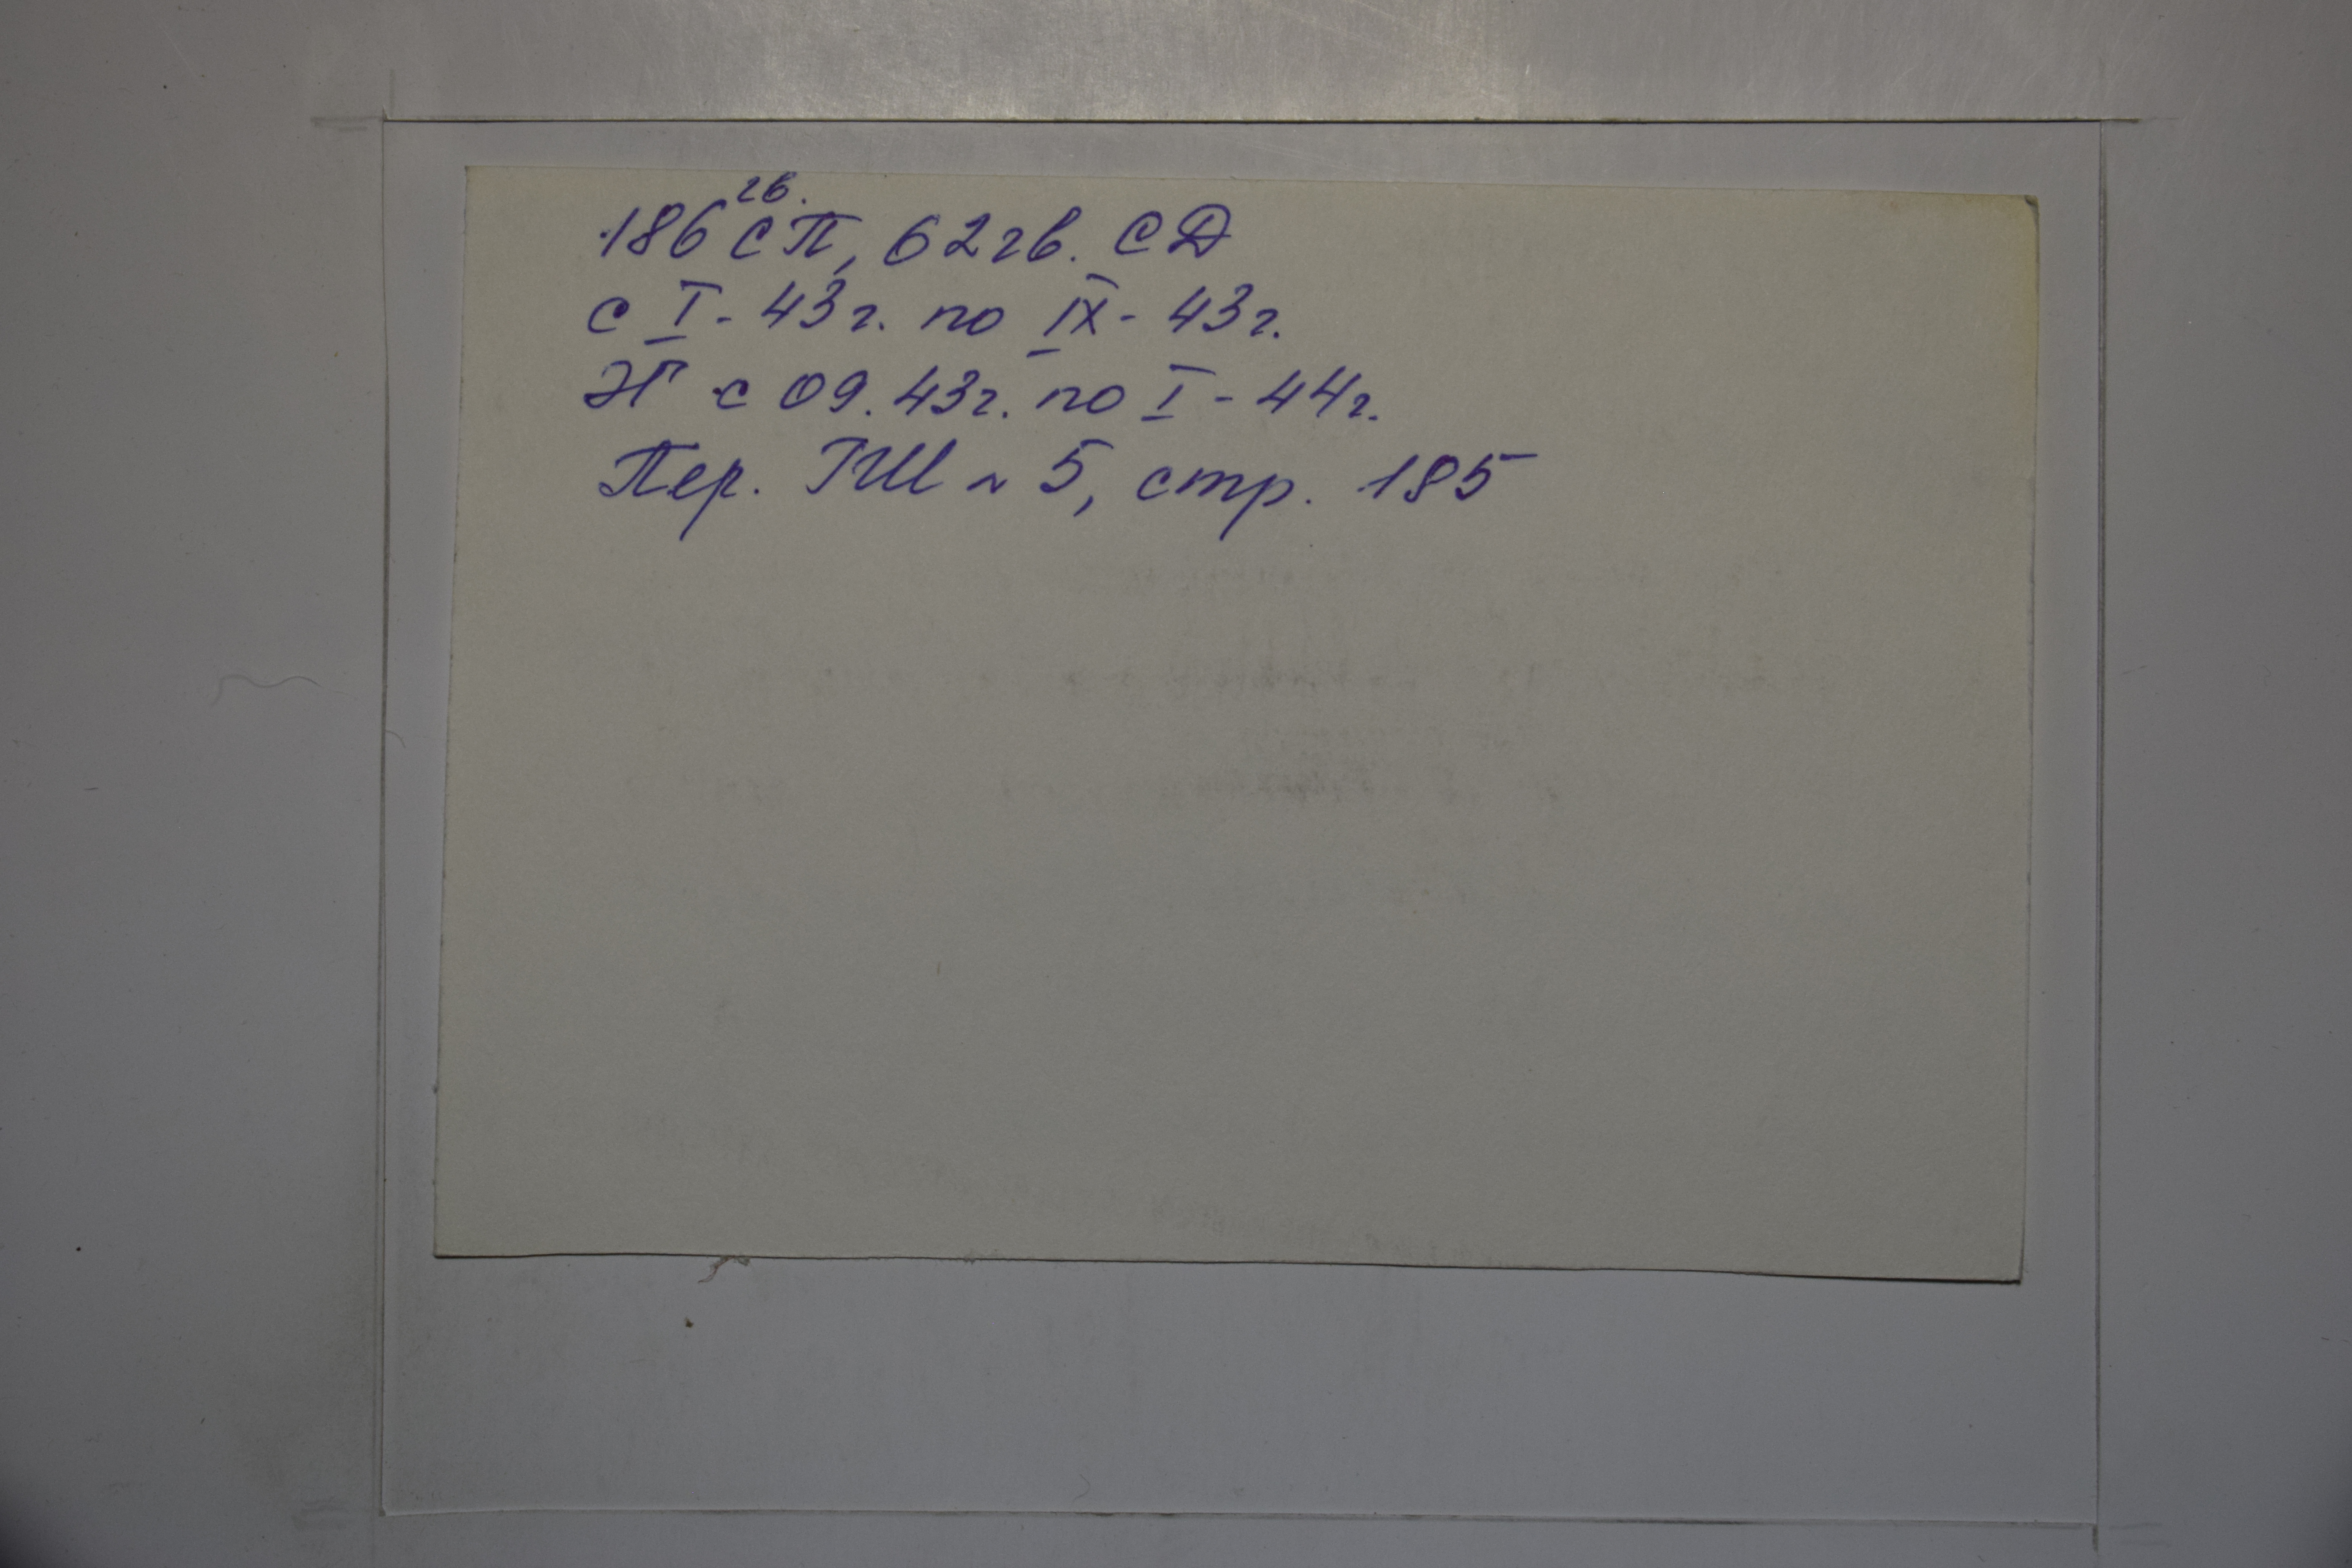 186 гв. СП, 62 гв. СД
с I - 43 г. по IX - 43 г.
ЭГ с 09.43 г. по I - 44 г.
Пер. ГШ № 5, стр. 185